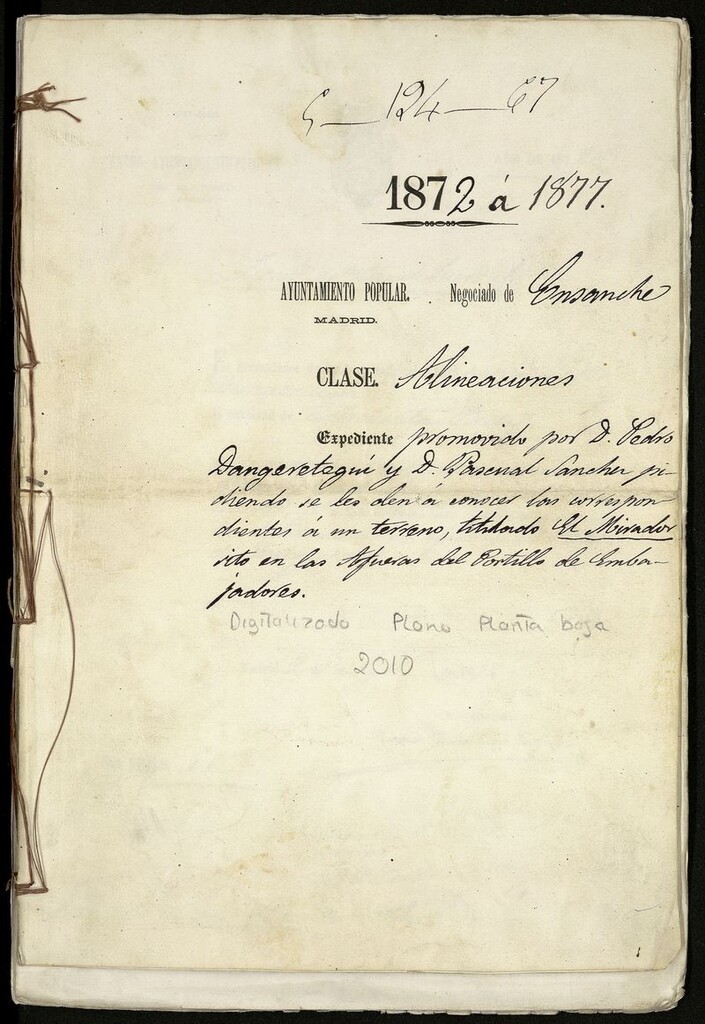 5-124-67
1872 á 1877.
AYUNTAMIENTO POPULAR. Negociado de Ensanche
MADRID.
CLASE. Alineaciones
Expediente promovido por D. Pedro
Dangeretegui y D. Pascual Sanchez pi-
diendo se les den á conocer las correspon-
dientes á un terreno, titulado El Mirador
sito en las Afueras del Portillo de Emba-
jadores.
Digitalizado Plano Planta baja
2010
1